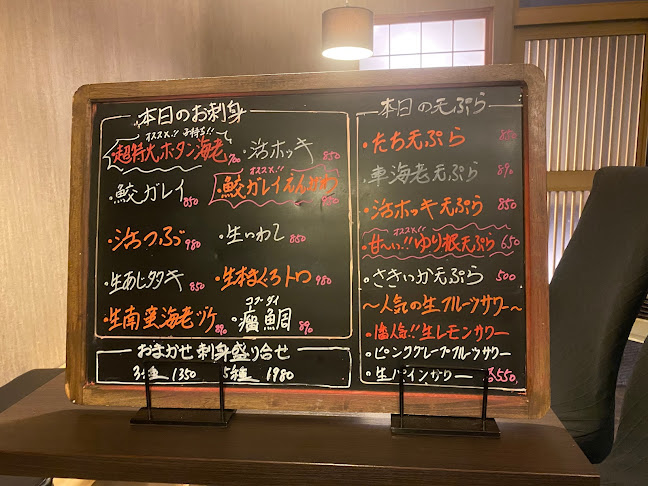 本日のお刺身
オススメ!! 子持ち!!
・超特大ボタン海老
・活ホッキ 850
・鮫ガレイ 850
オススメ!!
・鮫ガレイえんがわ
・活つぶ 980
・生いわし 850
・生あじタタキ 850
・生本まぐろトロ 980
・生南蛮海老ヅケ 890
コブ・ダイ
・瘤鯛 890
おまかせ刺身盛り合せ
3種 1350 5種 1980
本日の天ぷら
・たち天ぷら 850
・車海老天ぷら 890
・活ホッキ天ぷら 850
オススメ!!
・甘〜い!!ゆり根天ぷら 650
・さきいか天ぷら 500
〜人気の生フルーツサワー〜
・1番人気!!生レモンサワー
・ピンクグレープフルーツサワー
・生パインサワー 各550